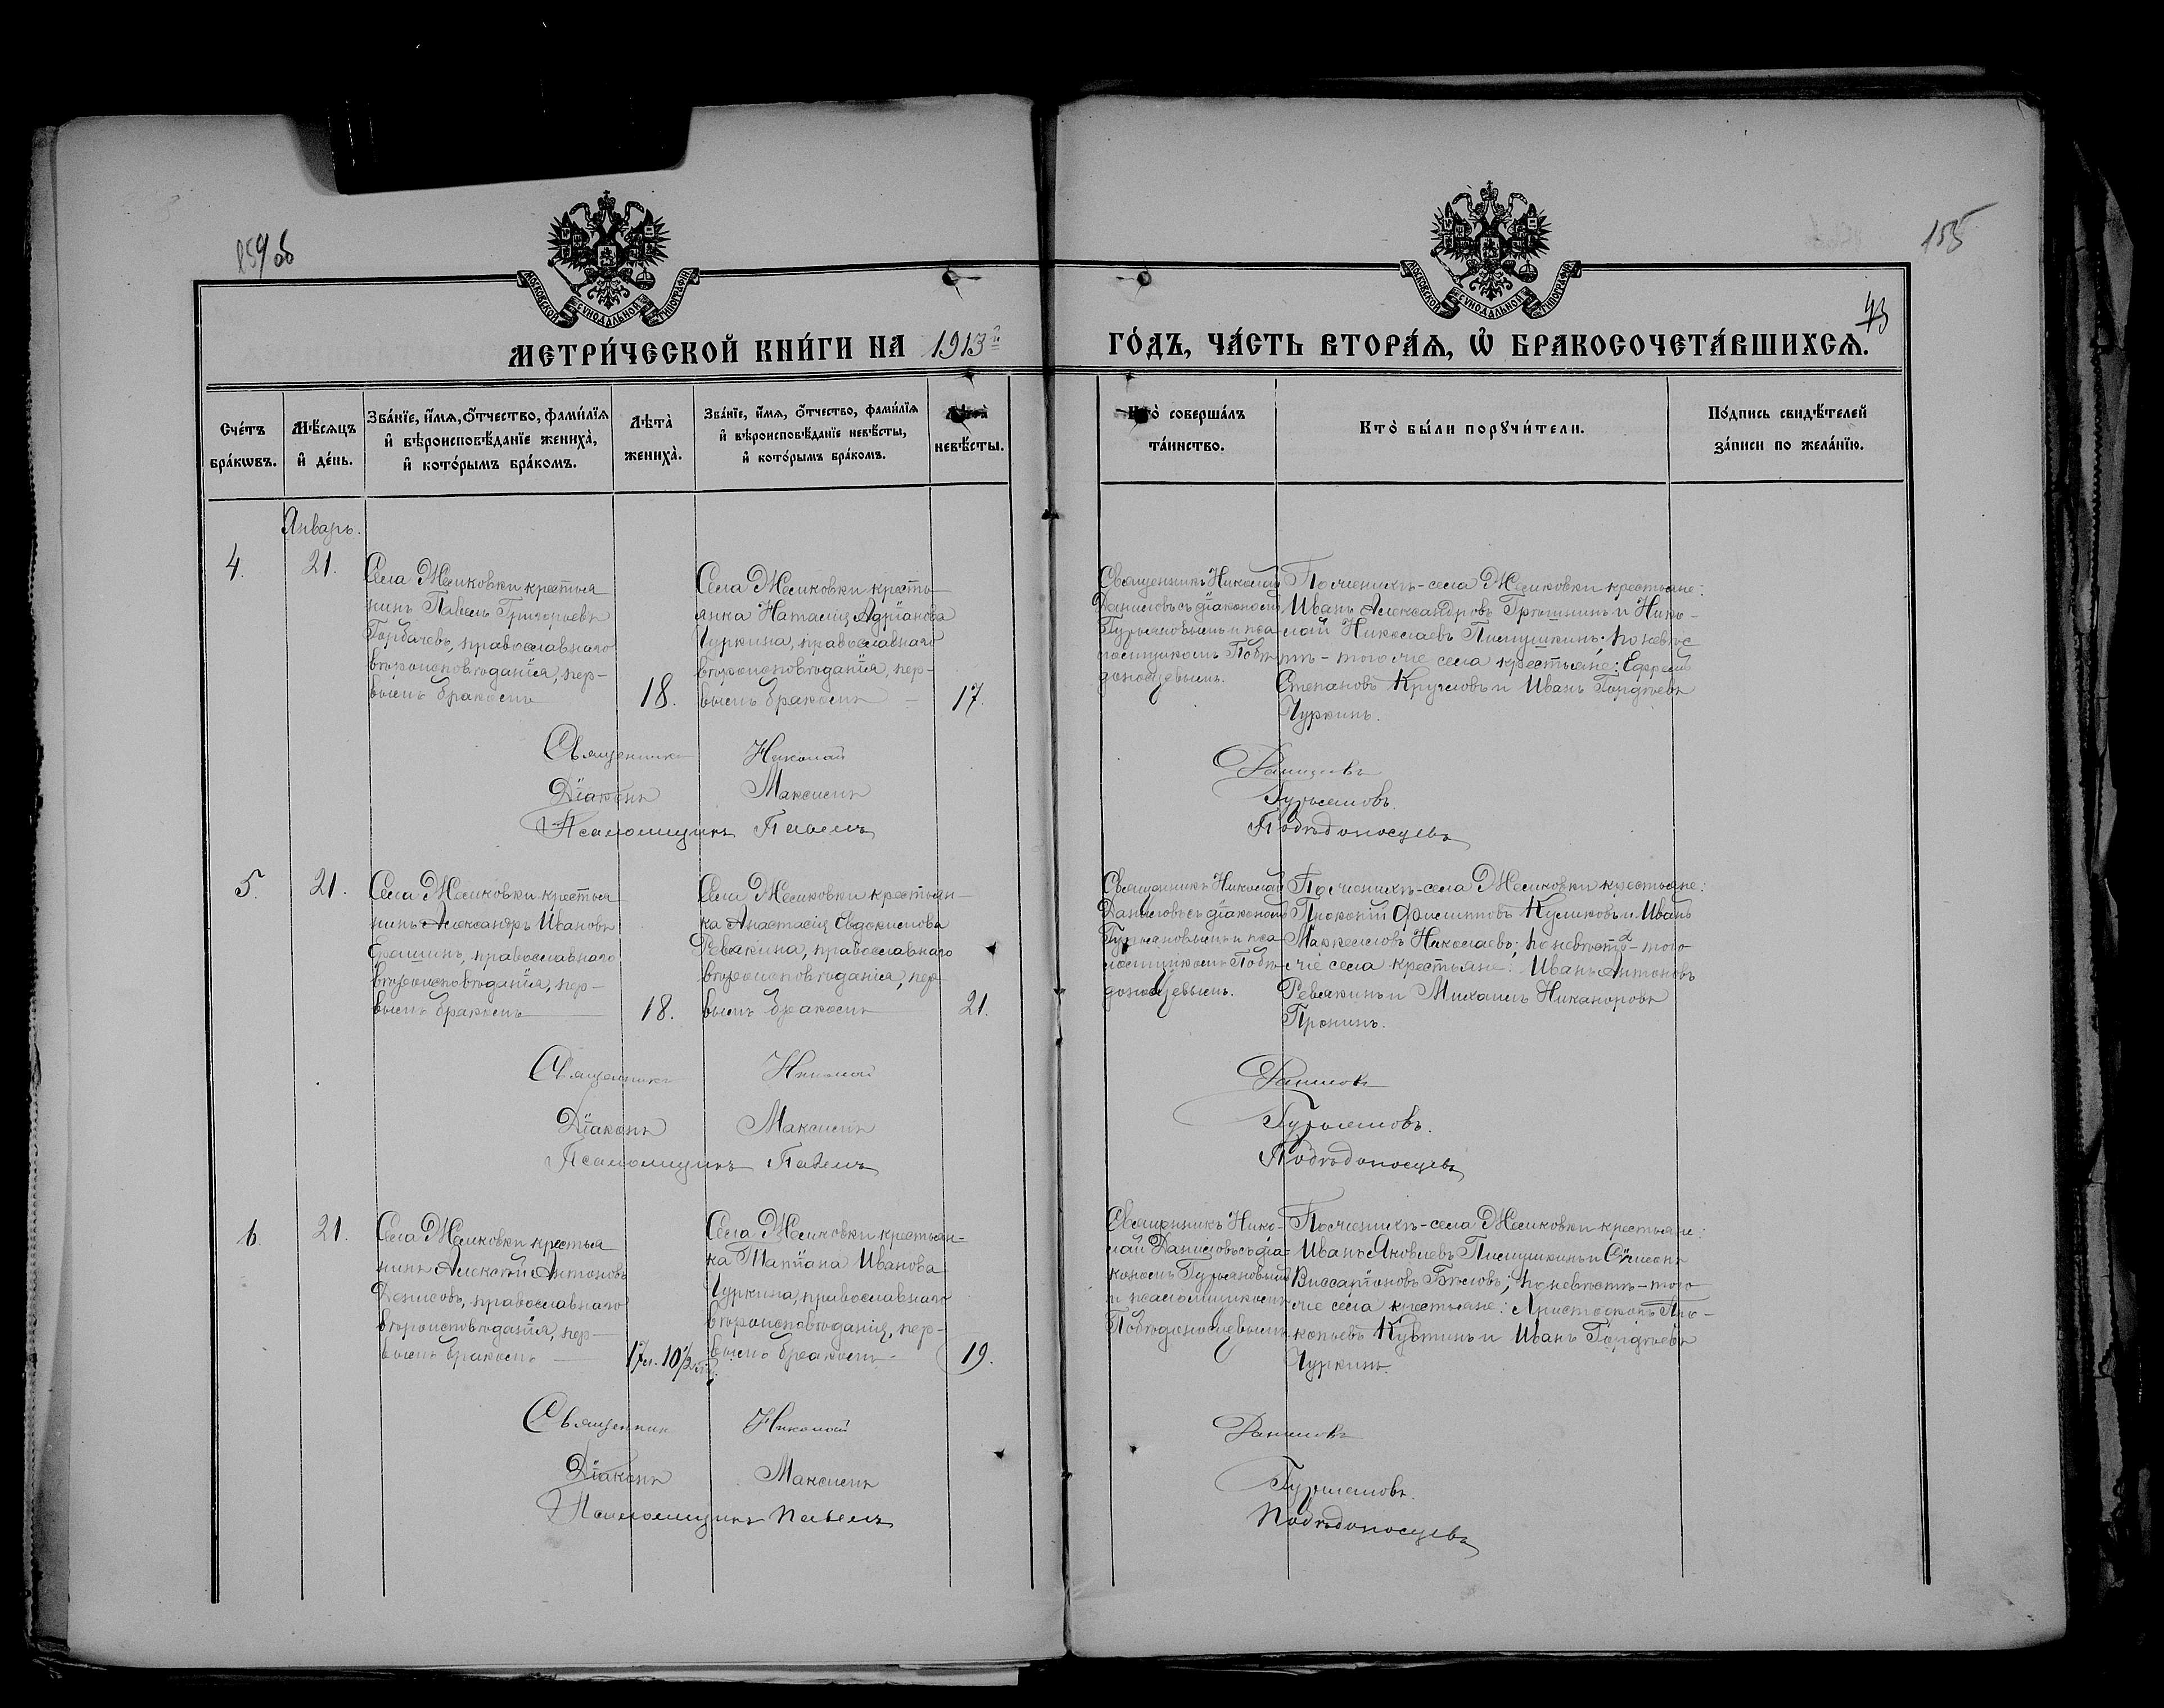 155
43
МОСКОВСКОЙ СѴНОДАЛЬНОЙ ТИПОГРАФІИ
МОСКОВСКОЙ СѴНОДАЛЬНОЙ ТИПОГРАФІИ
МЕТРИ́ЧЕСКОЙ КНИ́ГИ НА 1913й
ГО́ДЪ, ЧА́СТЬ ВТОРА́Ѧ, Ѡ҆ БРАКОСОЧЕТА́ВШИХСѦ.
Сче́тъ бра́кѡвъ.
Мѣ́сѧцъ и҆ де́нь.
Зва́нїе, и҆́мѧ, ѻ҆́тчество, фами́лїѧ и҆ вѣроисповѣ́данїе жениха̀, и҆ кото́рымъ бра́комъ.
Лѣта̀ жениха̀.
Зва́нїе, и҆́мѧ, ѻ҆́тчество, фами́лїѧ и҆ вѣроисповѣ́данїе невѣ́сты, и҆ кото́рымъ бра́комъ.
Лѣта̀ невѣ́сты.
Кто̀ соверша́лъ та́инство.
Кто̀ бы́ли порꙋчи́тели.
По́дпись свидѣ́телей за́писи по жела́нїю.
Январь.
4.
21.
Села Желиковки крестья
нинъ Павелъ Григорьевъ
Горбачевъ, православнаго
вѣроисповѣданія, пер-
вымъ бракомъ
18.
Села Желиковки кресть-
янка Наталія Адріанова
Чуркина, православнаго
вѣроисповѣданія, пер-
вымъ бракомъ
17.
Священникъ Николай
Даниловъ съ діакономъ
Гурьяновымъ и пса-
ломщикомъ Побѣ-
доносцевымъ.
По женихѣ - села Желиковки крестьяне:
Иванъ Александровъ Грошнинъ и Нико-
лай Николаевъ Пилушкинъ; по невѣс
тѣ - того же села крестьяне: Ефремъ
Степановъ Кругловъ и Иванъ Гордѣевъ
Чуркинъ.
Священникъ Николай Даниловъ
Діаконъ Максимъ Гурьяновъ.
Псаломщикъ Павелъ Побѣдоносцевъ
5.
21.
Села Желиковки крестья
нинъ Александръ Ивановъ
Ерашинъ, православнаго
вѣроисповѣданія, пер-
вымъ бракомъ
18.
Села Желиковки крестьян-
ка Анастасія Евдокимова
Ревякина, православнаго
вѣроисповѣданія, пер-
вымъ бракомъ
21.
Священникъ Николай
Даниловъ съ діакономъ
Гурьяновымъ и пса-
ломщикомъ Побѣ-
доносцевымъ.
По женихѣ - села Желиковки крестьяне:
Прокопій Филипповъ Куликовъ и Иванъ
Маркелловъ Николаевъ; по невѣстѣ - того
же села крестьяне: Иванъ Антоновъ
Ревякинъ и Михаилъ Никаноровъ
Пронинъ.
Священникъ Николай Даниловъ
Діаконъ Максимъ Гурьяновъ.
Псаломщикъ Павелъ Побѣдоносцевъ
6.
21.
Села Желиковки крестья
нинъ Алексѣй Антоновъ
Денисовъ, православнаго
вѣроисповѣданія, пер-
вымъ бракомъ
17 л. 10½
Села Желиковки крестьян-
ка Татіана Иванова
Чуркина, православнаго
вѣроисповѣданія, пер-
вымъ бракомъ
19.
Священникъ Нико-
лай Даниловъ съ діа-
кономъ Гурьяновымъ
и псаломщикомъ
Побѣдоносцевымъ
По женихѣ - села Желиковки крестьяне:
Иванъ Яковлевъ Пилушкинъ и Сѵмеонъ
Виссаріоновъ Бѣловъ; по невѣстѣ - того
же села крестьяне: Аристархъ Про-
копьевъ Кувтинъ и Иванъ Гордѣевъ
Чуркинъ.
Священникъ Николай Даниловъ
Діаконъ Максимъ Гурьяновъ.
Псаломщикъ Павелъ Побѣдоносцевъ